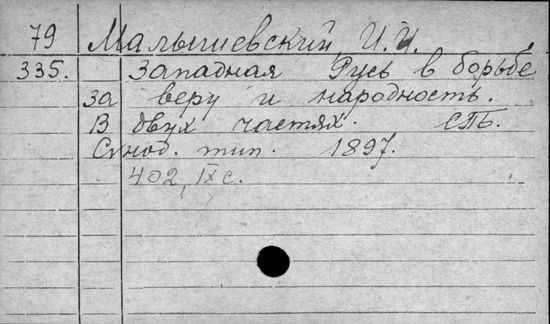 79 Малышевский И.И.
335. Западная Русь в борьбе
за веру и народность.
В двух частях. СПБ.
Синод. тип. 1897.
402, IX с.